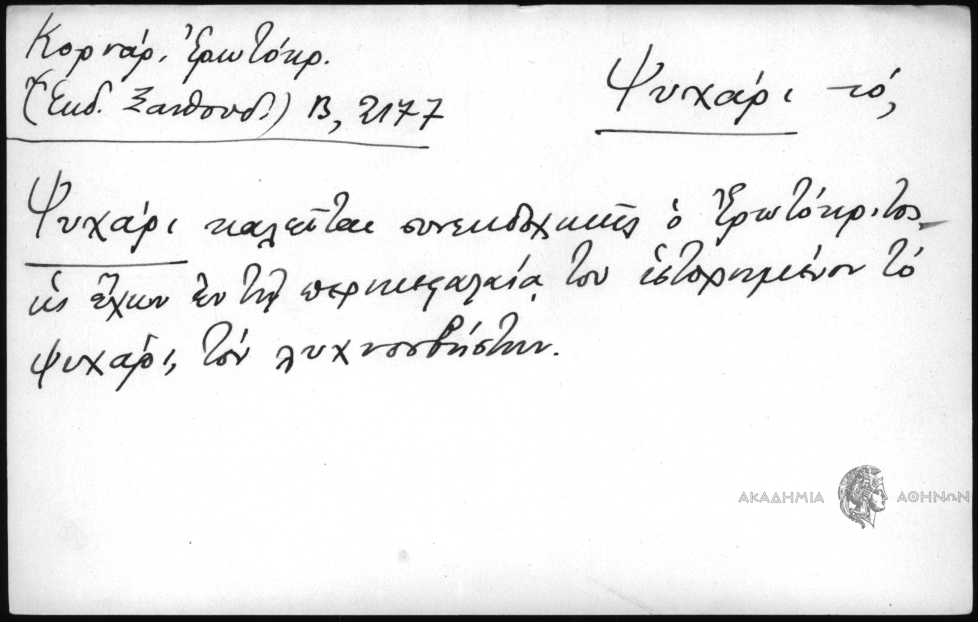 Κορνάρ. Ἐρωτόκρ.
(Ἐκδ. Ξανθουδ.) Β, 2177
Ψυχάρι τό,
Ψυχάρι καλεῖται συνεκδοχικῶς ὁ Ἐρωτόκριτος
ὡς ἔχων ἐν τῇ περικεφαλαίᾳ του ἱστορημένον τό
ψυχάρι, τόν λυχνοσβήστην.
ΑΚΑΔΗΜΙΑ ΑΘΗΝΩΝ